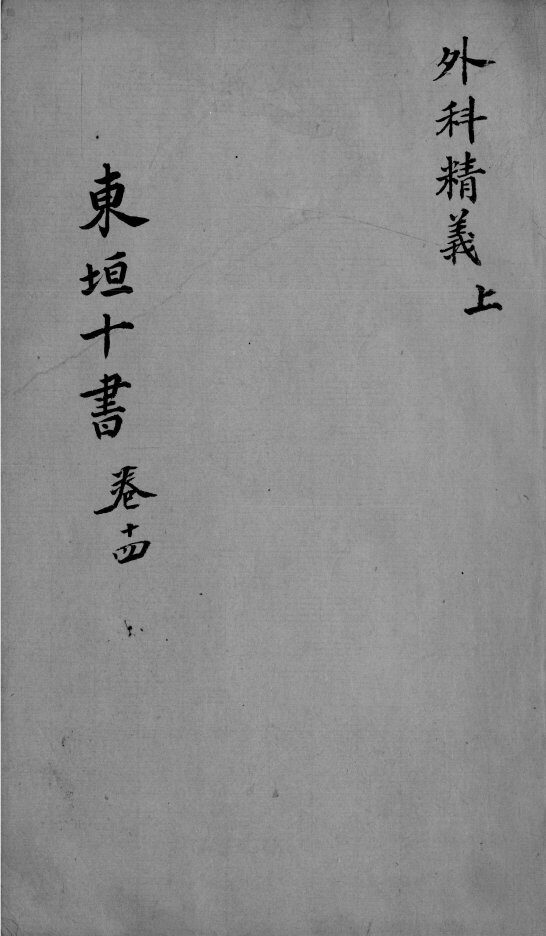 外科精義上
東垣十書卷十四